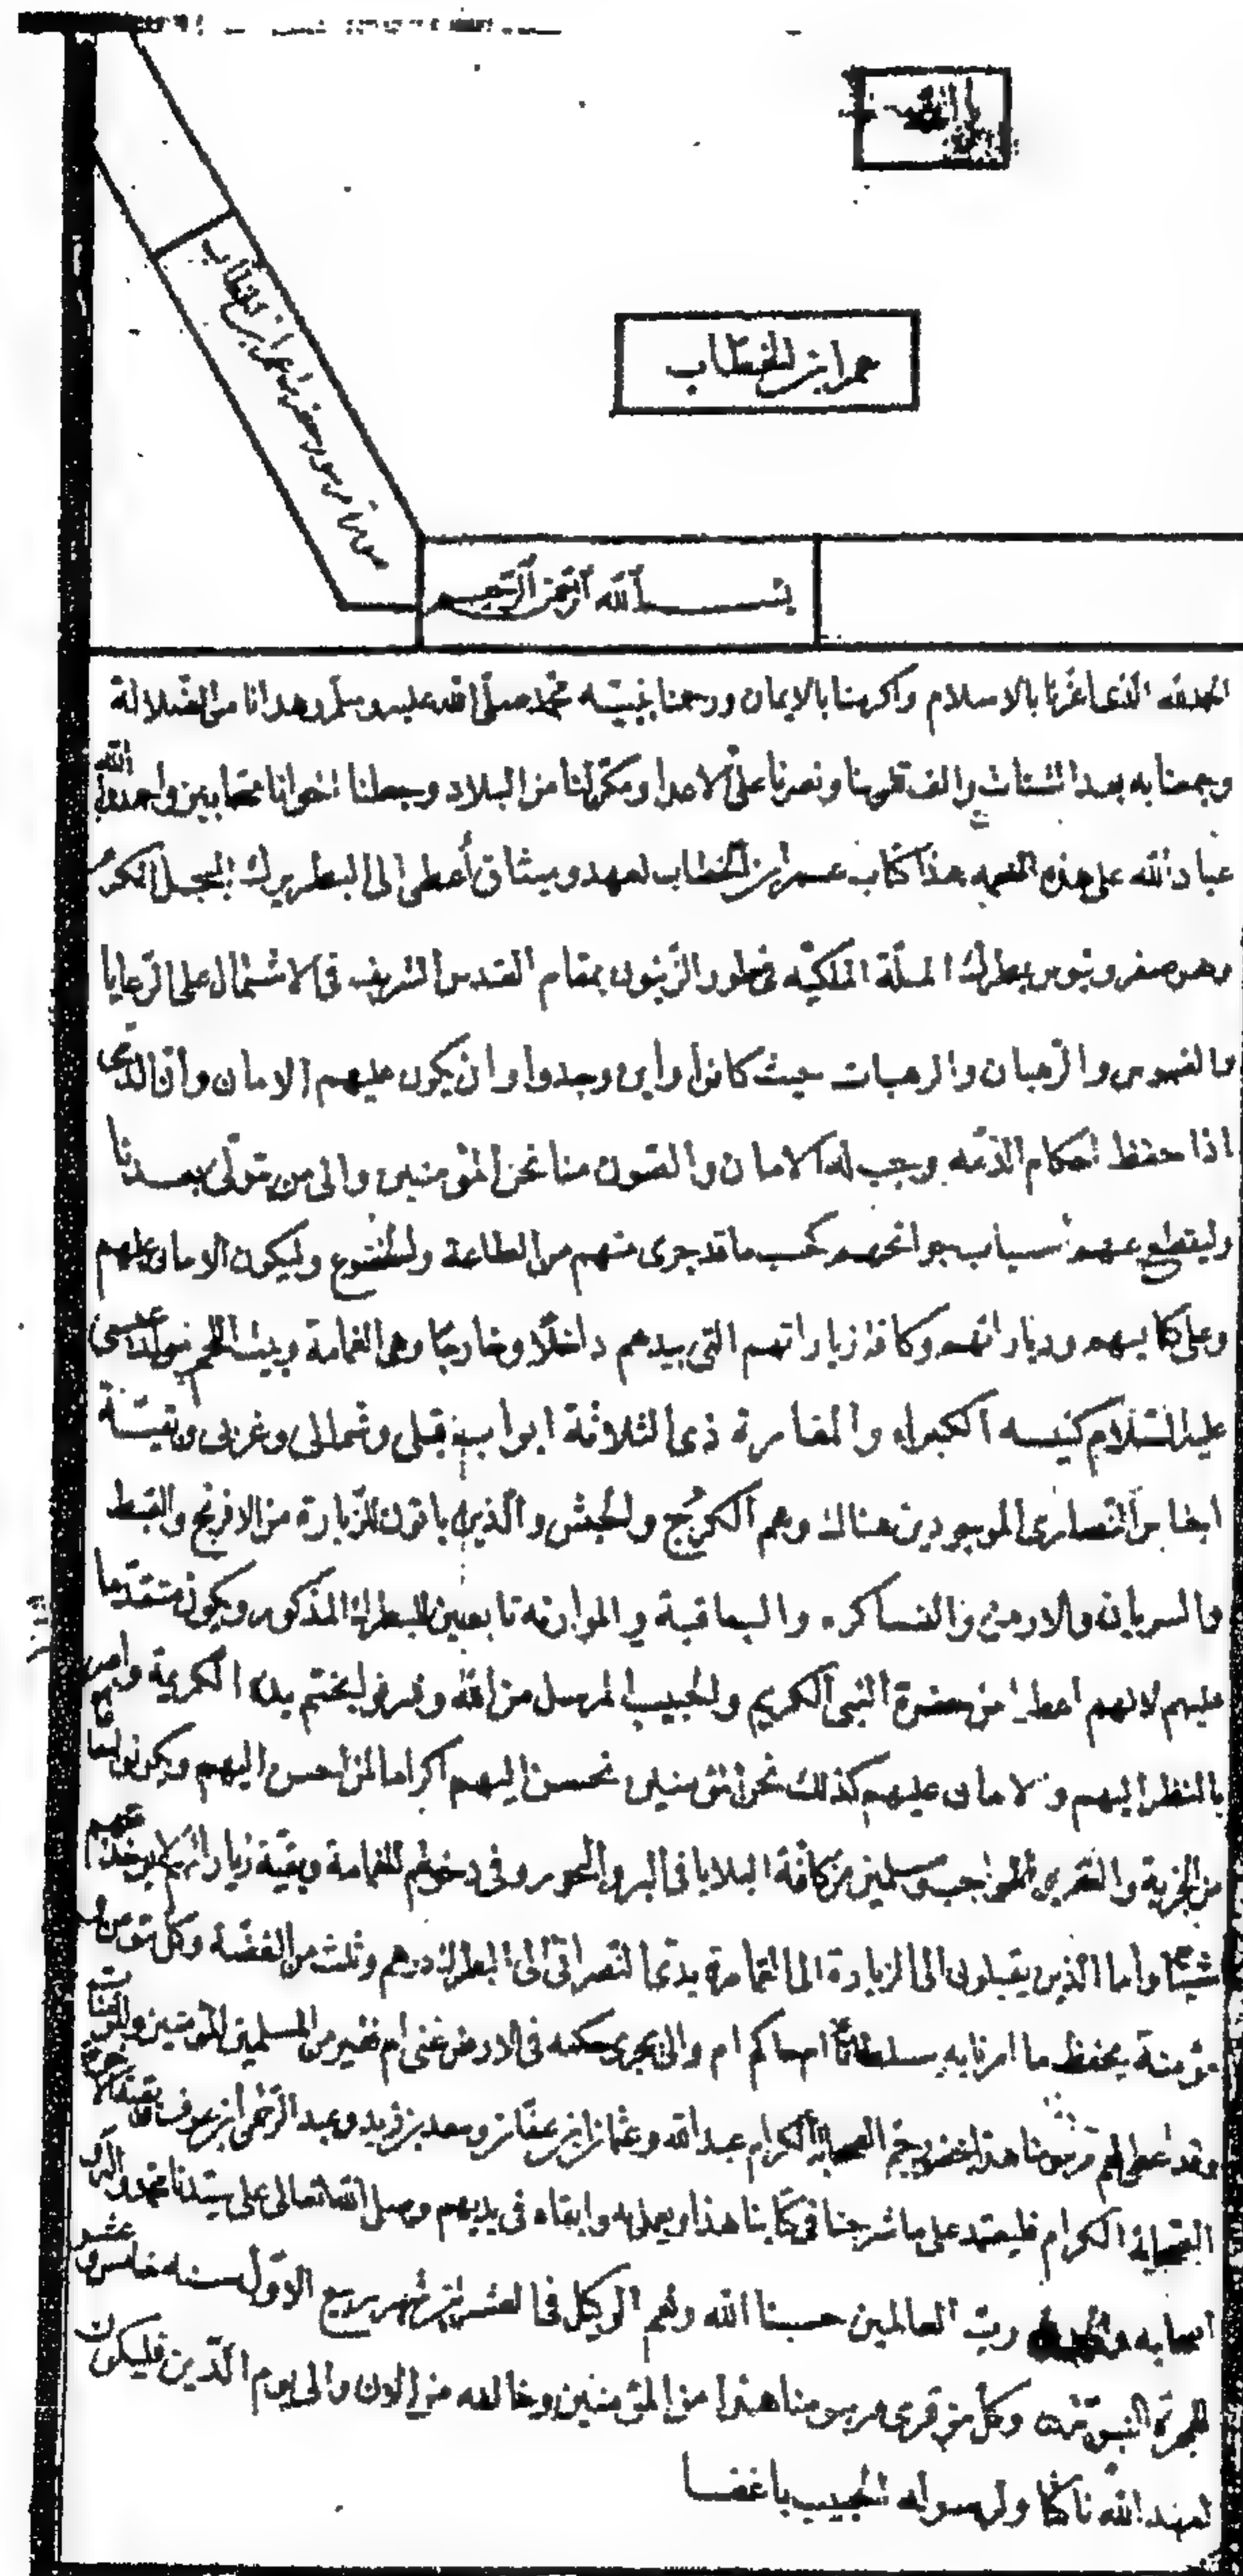 عمر ابن الخطاب
صورة مرسوم حضرة عمر ابن الخطاب
بسم الله الرحمن الرحيم
الحمد لله الذى اعزنا بالاسلام واكرمنا بالايمان ورحمنا بنبيّه محمّد صلّى الله عليه وسلّم وهدانا من الضّلالة
وجمعنا به بعد الشتات والف قلوبنا ونصرنا على الاعدا ومكّن لنا من البلاد وجعلنا اخوانا متحابين واحمدوا الله
عباد الله على هذه النعمه هذا كتاب عمر ابن الخطاب لعهد وميثاق أعطى الى البطريرك المبجل المكرّم
وهو صفرونيوس بطرك الملّة الملكيّه فى طور الزّيتون بمقام القدس الشريف فى الاشتمال على الرّعايا
والقسوس والرّهبان والرهبات حيث كانوا واين وجدوا وان يكون عليهم الامان وان الذمّى
اذا حفظ احكام الذمّه وجب له الامان والصّون منا نحن المؤمنين والى من يتولّى بعدنا
وليقطع عنهم أسباب جوانحهم كحسب ما قد جرى منهم من الطاعة والخضوع وليكون الامان عليهم
وعلى كنايسهم ودياراتهم وكافة زياراتهم التى بيدهم داخلًا وخارجًا وهى القمامة وبيت اللحم مولد عيسى
عليه السّلام كنيسه الكبراء والمغارة ذى الثلاثة ابواب قبلى وشمالى وغربى وبقيّة
اجناس النّصارى الموجودين هناك وهم الكرُج والحبش والّذين ياتون للزّيارة من الافرنج والقبط
والسريان والارمن والنساطره واليعاقبة والموارنه تابعين للبطرك المذكور ويكون متقدّما
عليهم لانهم اعطوا من حضرة النّبى الكريم والحبيب المرسل من الله وشرفوا بختم يده الكريمة وامر
بالنظر اليهم والامان عليهم كذلك نحن المؤمنين نحسن اليهم اكراما لمن احسن اليهم ويكونوا معافا
من الجزية والغفر والمواجب ومسلمين من كافّة البلايا فى البر والبحور وفى دخولهم للقمامة وبقيّة زياراتهم لا يؤخذ منهم
شيئًا وأما الّذين يقبلون الى الزيارة الى القمامة يؤدّى النّصرانى الى البطرك درهم وثلث من الفضّة وكل مؤمن
ومؤمنة يحفظ ما امرنا به سلطانًا ام حاكم ام والى يجرى حكمه فى الارض غنى ام فقير من المسلمين المؤمنين والمؤمنات
وقد اعطى لهم مرسومنا هذا بحضور جمّ الصحابة الكرام عبد الله وعثمان ابن عفّان وسعد بن زيد وعبد الرّحمن ابن عوف وبقية الاخوة
الصّحابة الكرام فليعتمد على ما شرحنا فى كتابنا هذا ويعمل به وابقاه فى يديهم وصلى الله تعالى على سيّدنا محمّد وآله و
اصحابه والحمد لله ربّ العالمين حسبنا الله ونعم الوكيل فى العشرين من شهر ربيع الاوّل سنه خامس عشر
للهجرة النّبويّة وكل من قرى مرسومنا هذا من المؤمنين وخالفه من الان والى يوم الدّين فليكن
لعهد الله ناكثا ولرسوله الحبيب باغضا